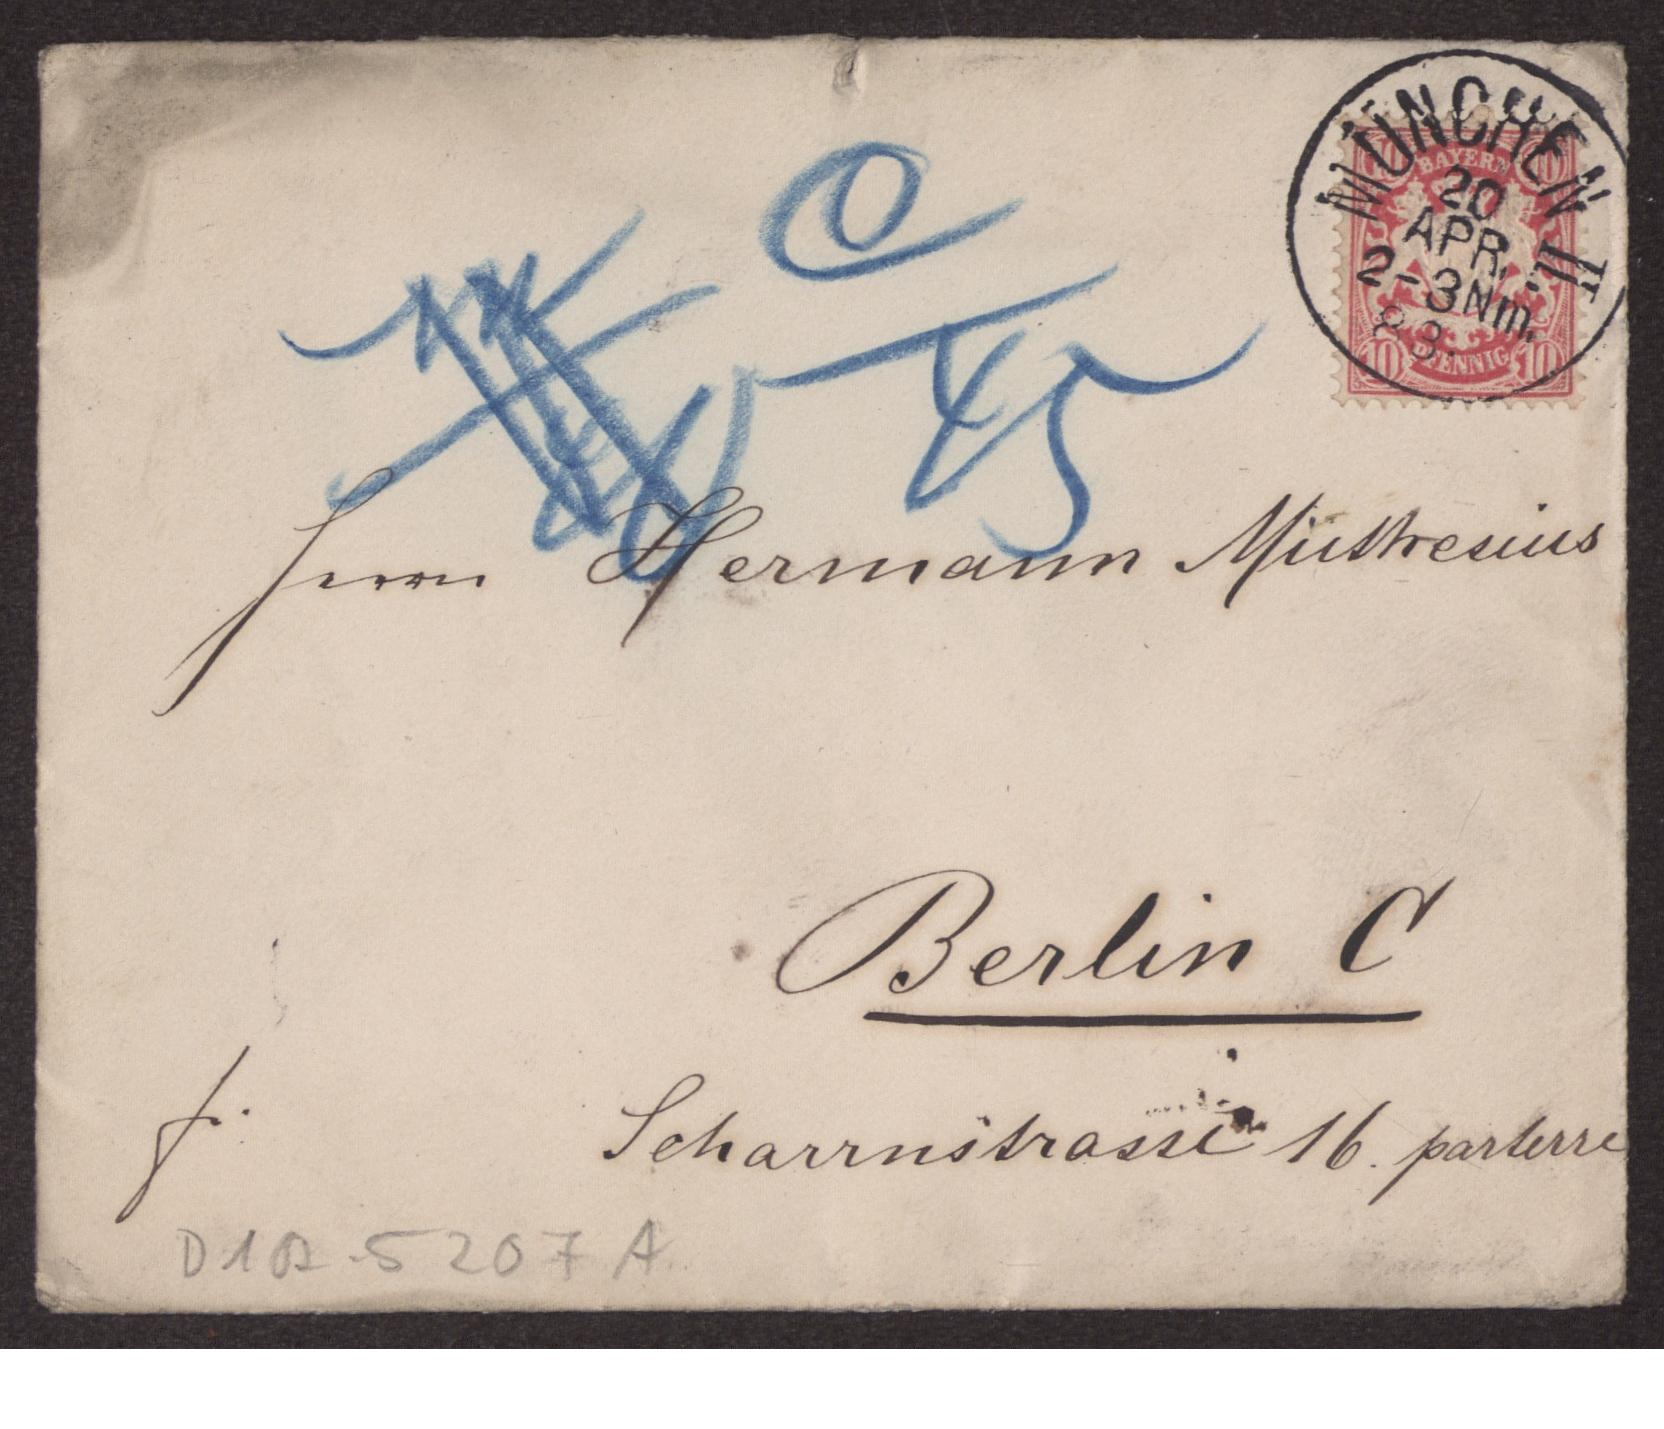 MÜNCHEN II
20
APR.
2-3Nm.
83.
BAYERN
10 PFENNIG 10
C
45
Herrn Hermann Muthesius
Berlin C
Scharrnstrasse 16. parterre
fr.
D102-5207 A